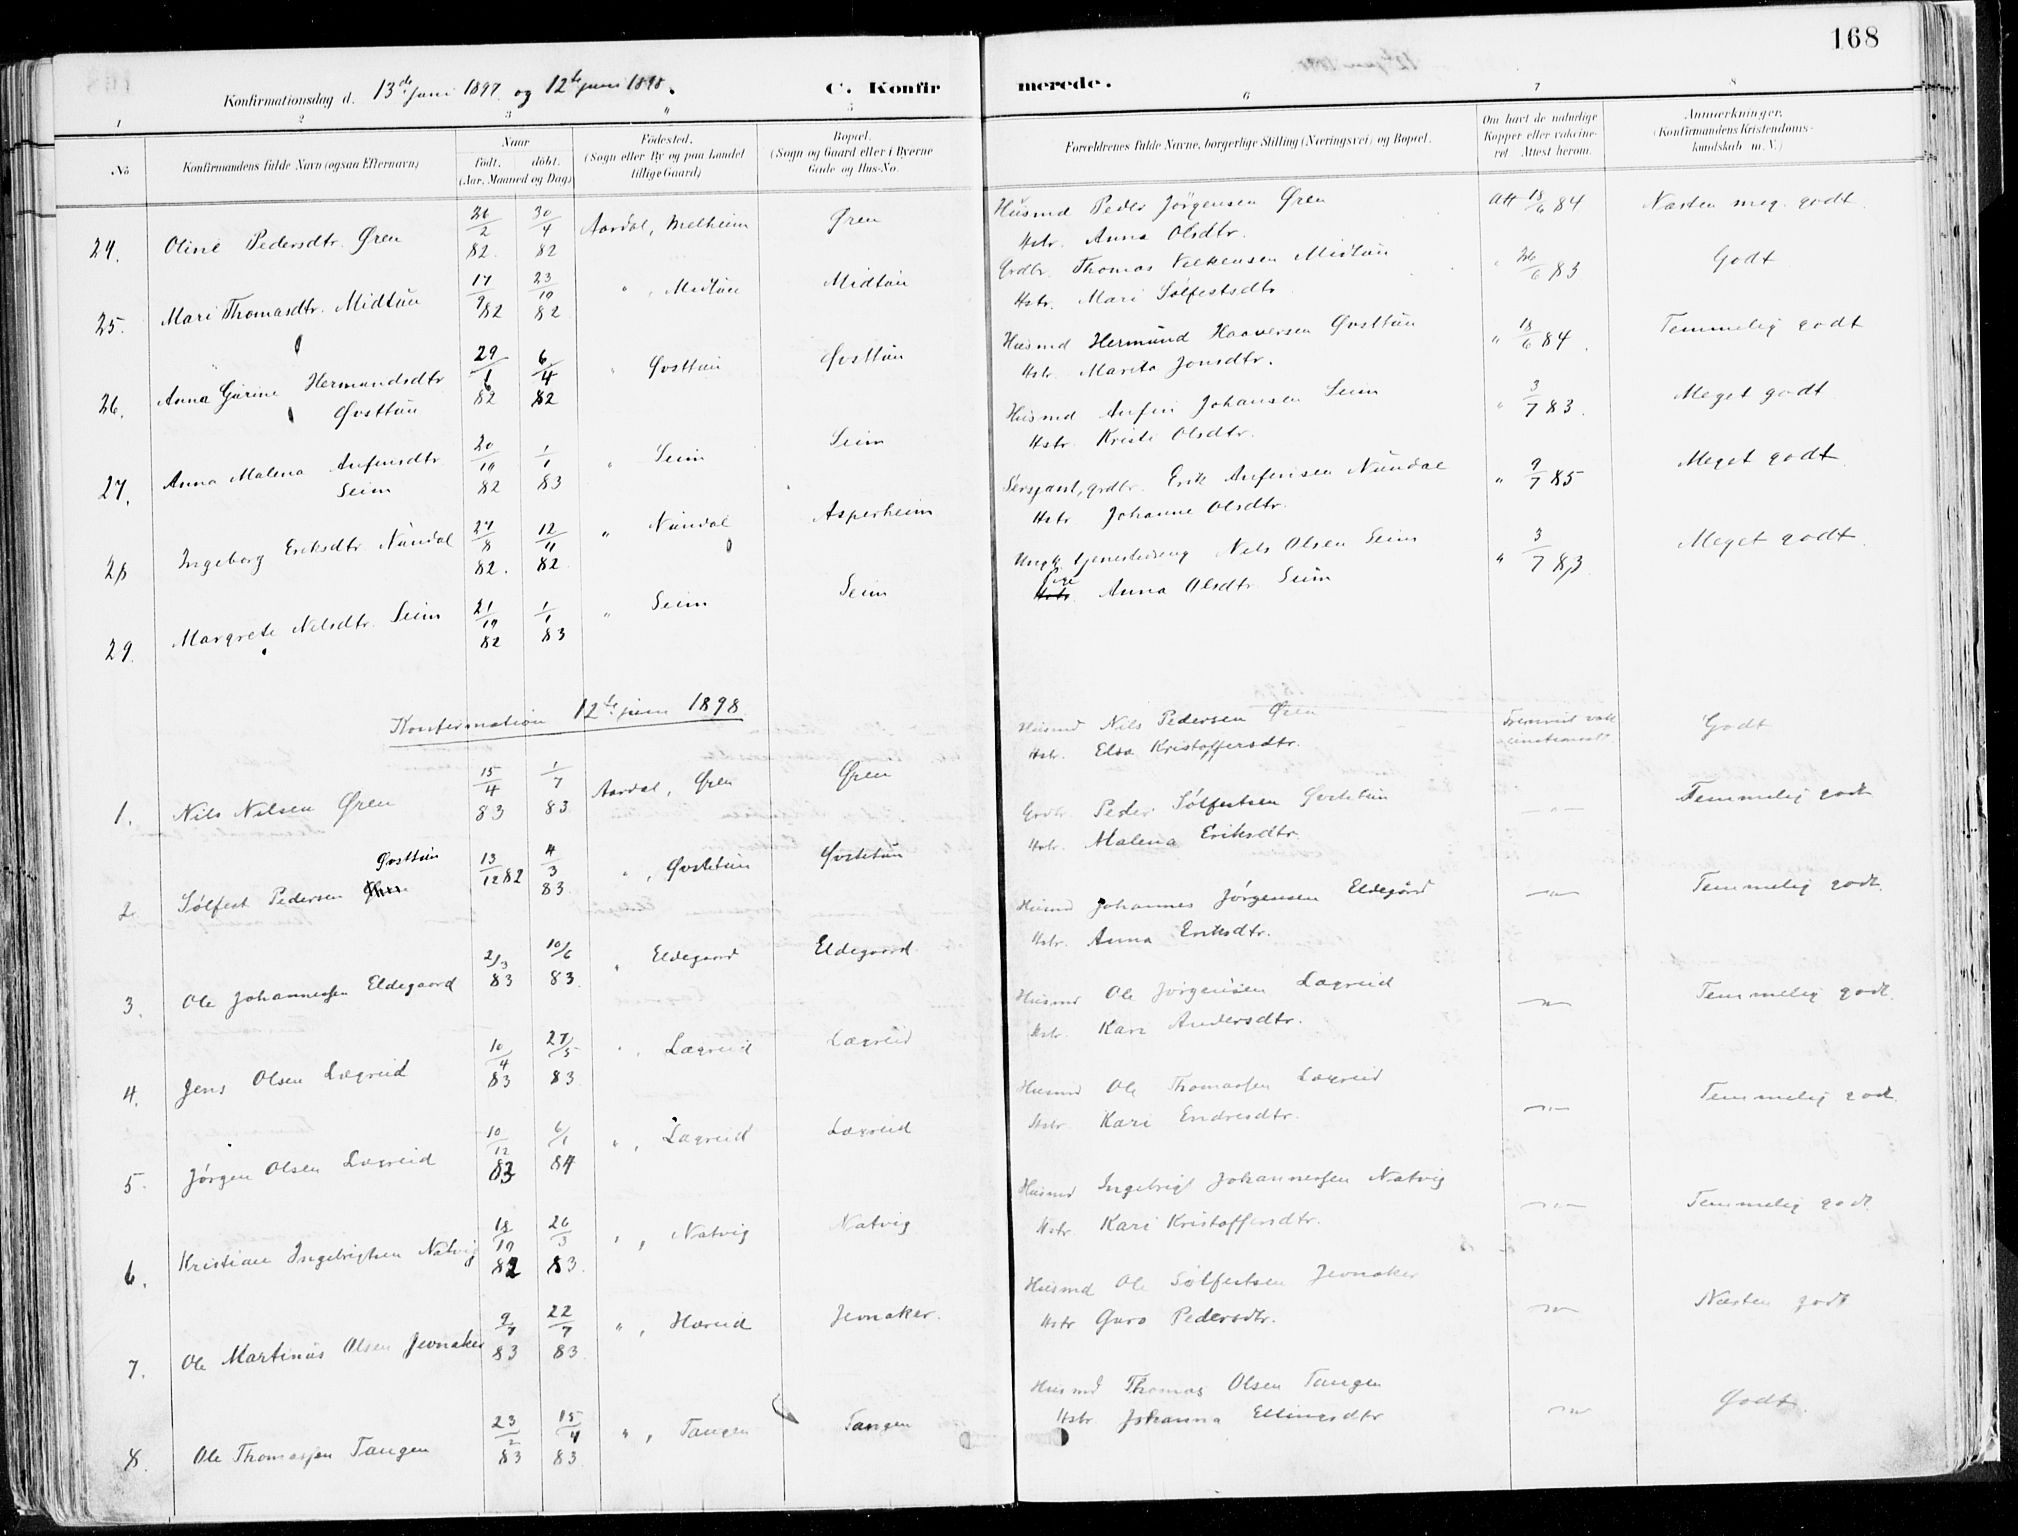 168
Konfirmationsdag d. 13de juni 1897 og 12te juni 1898. C. Konfirmerede.
1 2 3 4 5 6 7 8
No Konfirmandens fulde Navn (ogsaa Efternavn) Naar født. døbt. (Aar, Maaned og Dag) Födested. (Sogn eller By og paa Landet tillige Gaard) Bopæl. (Sogn og Gaard eller i Byerne Gade og Hus-No. Forældrenes fulde Navne, borgerlige Stilling (Næringsvei) og Bopæl. Om havt de naturlige Kopper eller vakcineret Attest herom. Anmærkninger. (Konfirmandens Kristendomskundskab m. V.)
24. Oline Pedersdtr. Øren 26/2 82. 30/4 82 Aardal, Melheim Øren Husmd Peder Jörgensen Øren Hstr. Anna Olsdtr. Att 18/6 84 Næsten meg. godt.
25. Mari Thomasdtr. Midtun 17/9 82 23/10 82 " , Midtun Midtun Grdbr. Thomas Midtun Hstr. Mari Sølfestsdtr. " 26/6 83 Godt
26. Anna Gurine Hermundsdtr Øvsttun 29/1 82 6/4 82 " Øvsttun Øvsttun Husmd Hermund Haaversen Øvsttun Hstr. Marita Jonsdtr. " 18/6 84. Temmelig godt
27. Anna Malena Anfinsdtr Seim 20/10 82 1/1 83 " Seim Seim Husmd Anfin Johansen Seim Hstr. Kristi Olsdtr. " 3/7 83. Meget godt
28 Ingeborg Eriksdtr Nundal 27/8 82. 12/11 82 " Nundal Asperheim Sersjant, grdbr. Erik Anfinsen Nundal Hstr Johanne Olsdtr. " 9/7 85 Meget godt.
29. Margrete Nilsdtr. Seim 21/10 82 1/1 83 " Seim Seim Ungk. tjenestedreng Nils Olsen Seim Pige Anna Olsdtr. Seim " 3/7 83 Meget godt.
Konfirmation 12te juni 1898
1. Nils Nilsen Øren 15/4 83 1/7 83 Aardal, Øren Øren Husmd Nils Pedersen Øren Hstr. Elsa Kristoffersdtr. Godt
2. Sølfest Pedersen Øvsttun 13/12 82 4/3 83. " , Øvsttun Øvsttun Grdbr. Peder Sølfestsen Øvsttun Hstr. Malena Eriksdtr. —"— Temmelig godt
3. Ole Johannessen Eldegaard 2/3 83 10/6 83. " Eldegaard Eldegaard. Husmd Johannes Jørgensen Eldegård Hstr. Anna Eriksdtr. —"— Temmelig godt.
4. Jens Olsen Lægreid 10/4 83 27/5 83. " , Lægreid Lægreid Husmd Ole Jørgensen Lægreid Hstr. Kari Andersdtr. —"— Temmelig godt.
5. Jørgen Olsen Lægreid 10/12 83 6/1 84 " , Lægreid Lægreid Husmd Ole Thomassen Lægreid Hstr. Kari Endresdtr. —"— Temmelig godt.
6. Kristian Ingebrigtsen Natvig 18/10 82 26/3 83. " , Natvig Natvig Husmd Ingebrigt Johannessen Natvig Hstr Kari Kristoffersdtr. —"— Temmelig godt
7. Ole Martinus Olsen Jevnaker 9/7 83 22/7 83. " , Hæreid Jevnaker. Husmd Ole Sølfestsen Jevnaker Hstr Guro Pedersdtr. —"— Næsten godt
8. Ole Thomassen Tangen 23/2 83 15/4 83. " , Tangen Tangen Husmd Thomas Olsen Tangen Hstr Johanna Ellingsdtr —"— Godt.